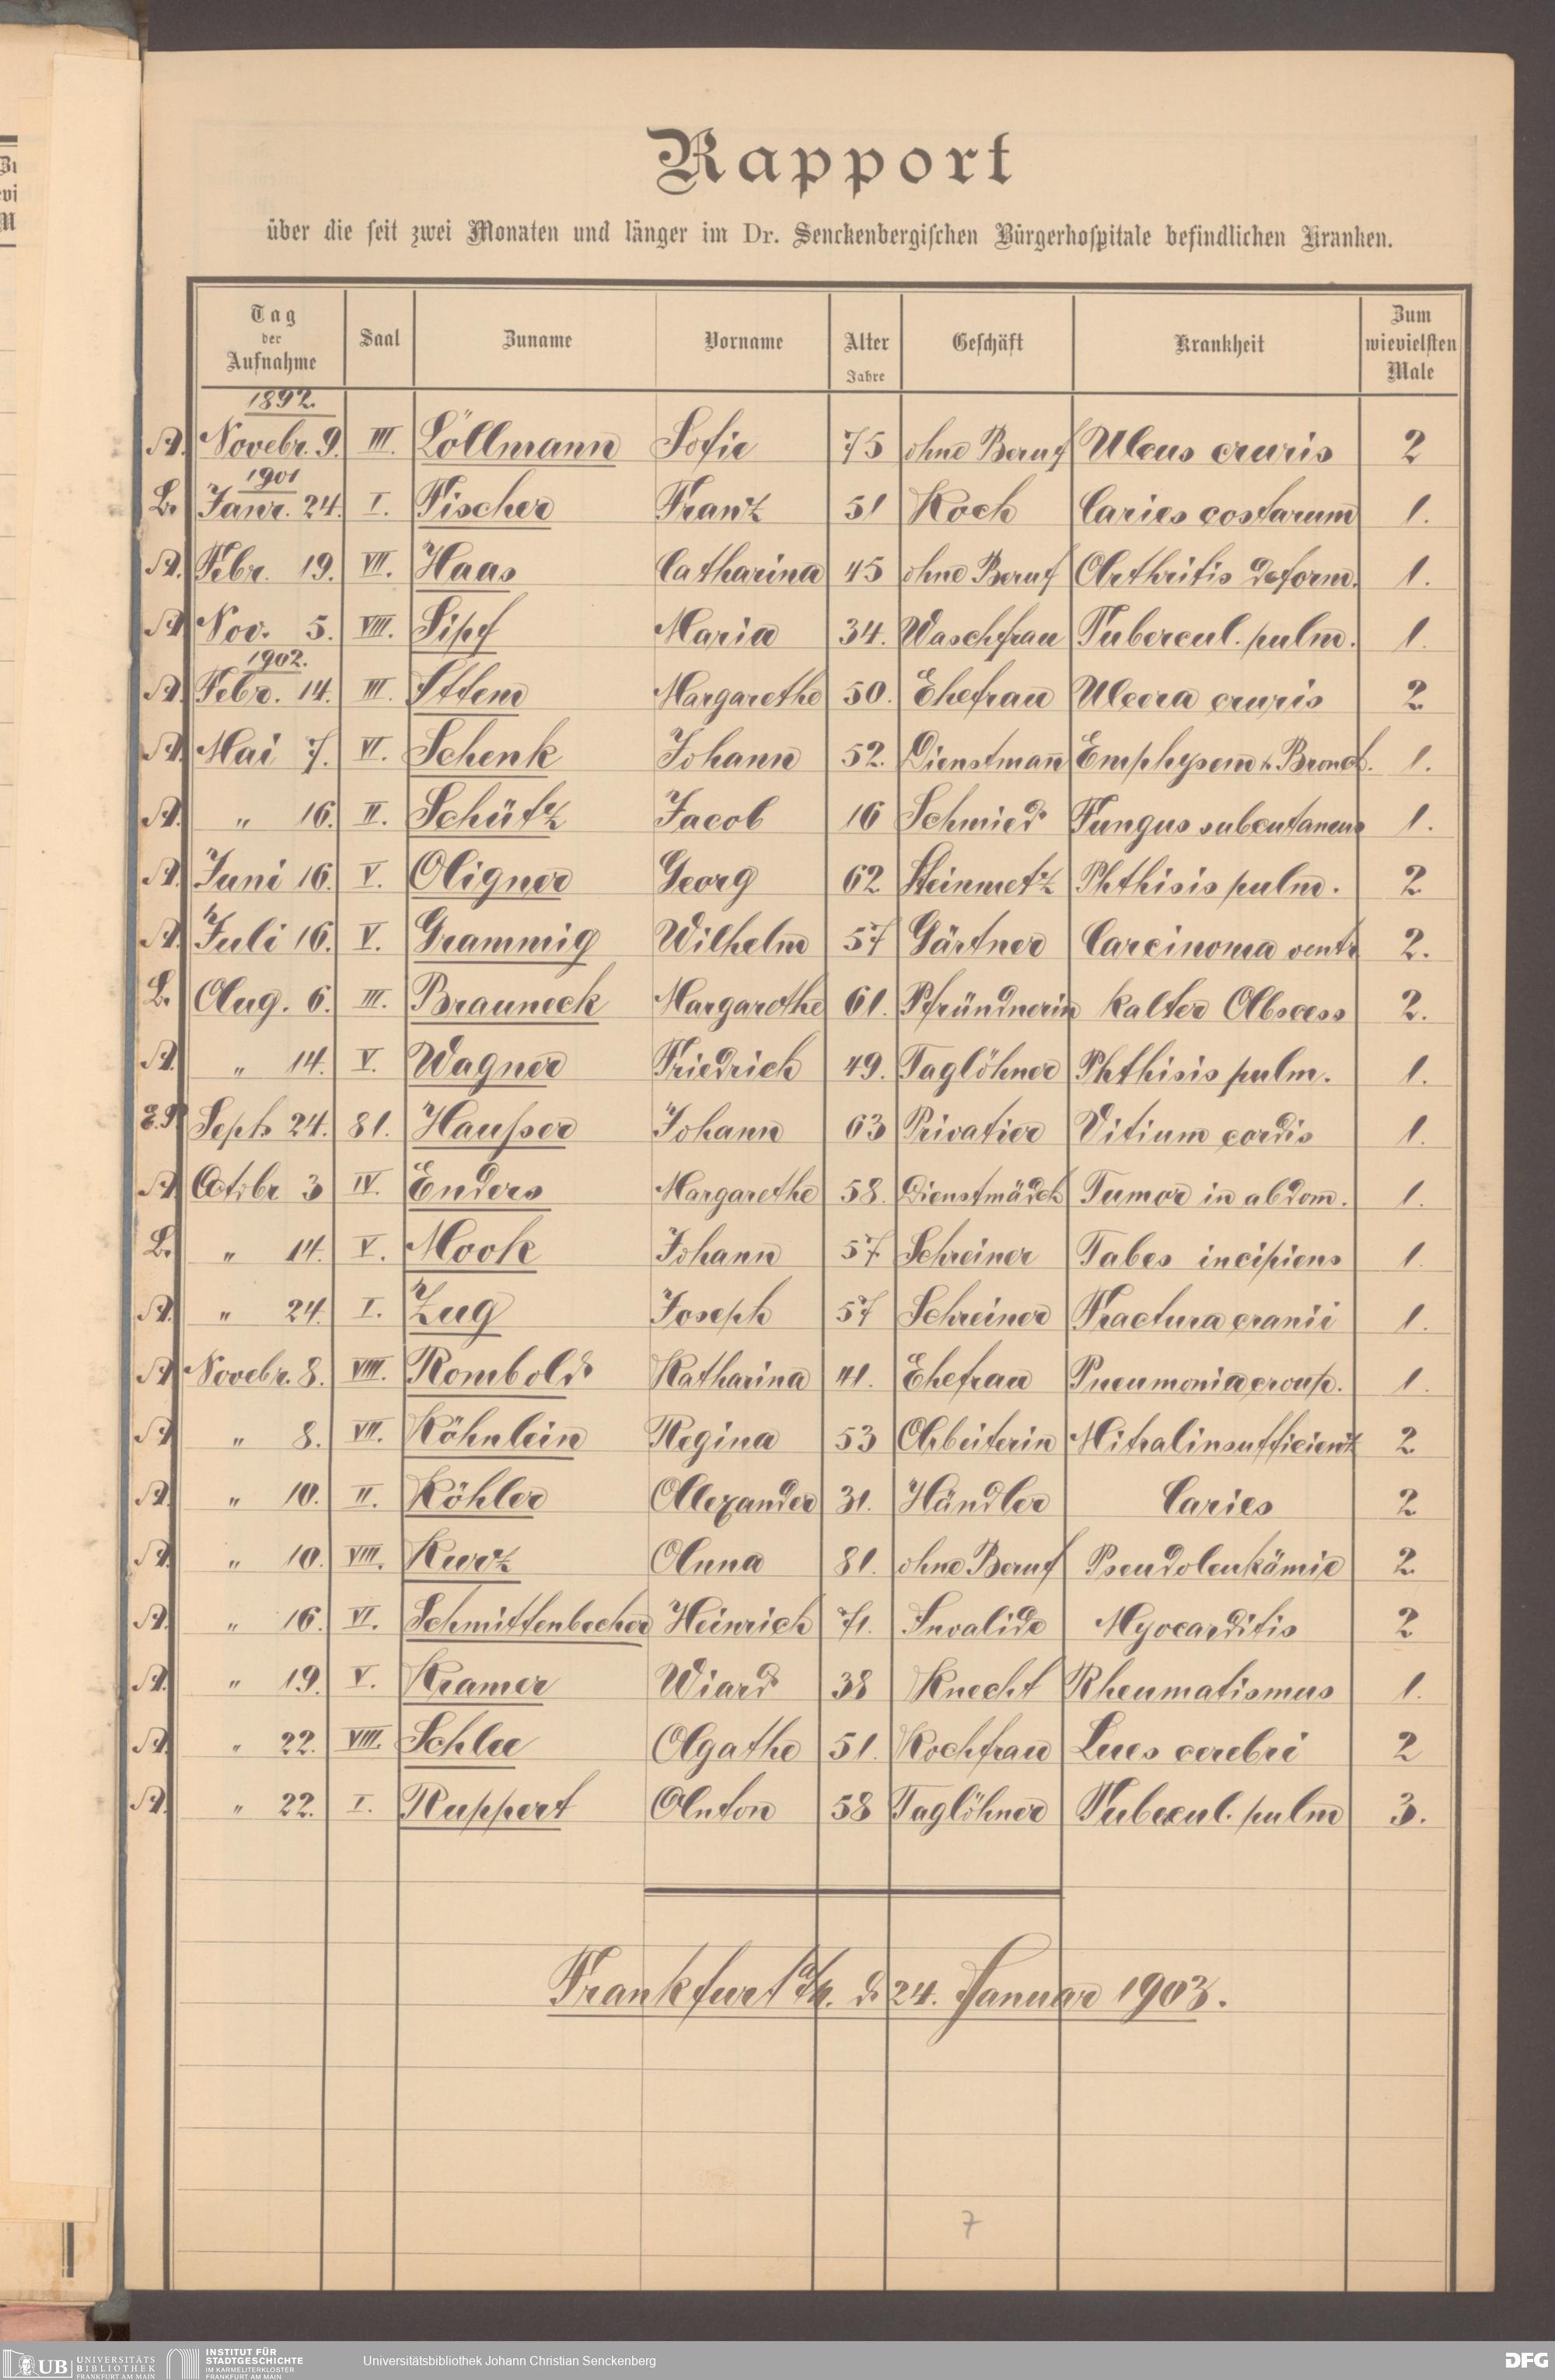 Rapport
über die seit zwei Monaten und länger im Dr. Senckenbergischen Bürgerhospitale befindlichen Kranken.
Tag der Aufnahme Saal Zuname Vorname Alter Jahre Geschäft Krankheit Zum wievielsten Male
1892.
A. Novebr. 9. III. Löllmann Sofie 75 ohne Beruf Ulcus cruris 2
1901
L. Janr. 24. I. Fischer Franz 51 Koch Caries costarum 1.
A. Febr. 19. VII. Haas Catharina 45 ohne Beruf Arthritis deform. 1.
A. Nov. 5. VIII. Sipf Maria 34. Waschfrau Tubercul. pulm. 1.
1902.
A. Febr. 14. III. Ittem Margarethe 50. Ehefrau Ulcera cruris 2
A. Mai 7. VI. Schenk Johann 52. Dienstmann Emphysem u. Bronch. 1.
A. " 16. II. Schütz Jacob 16 Schmied Fungus subcutaneus 1.
A. Juni 16. V. Aligner Georg 62 Steinmetz Phthisis pulm. 2
A. Juli 16. V. Grammig Wilhelm 57 Gärtner Carcinoma ventr 2.
L. Aug. 6. III. Brauneck Margarethe 61. Pfründnerin kalter Abscess 2.
A. " 14. V. Wagner Friedrich 49. Taglöhner Phthisis pulm. 1.
Sept. 24. 81. Hausser Johann 63 Privatier Vitium cordis 1.
A. Octobr 3 IV. Enders Margarethe 58. Dienstmädch Tumor in abdom. 1.
L. " 14. V. Mook Johann 57 Schreiner Tabes incipiens 1
A. " 24. I. Zug Joseph 57 Schreiner Fractura cranii 1.
A. Novebr. 8. VIII. Rombold Katharina 41. Ehefrau Pneumonia croup. 1.
A. " 8. VII. Köhnlein Regina 53 Arbeiterin Mitralinsufficienz 2
A. " 10. II. Köhler Alexander 31. Händler Caries 2
A. " 10. VIII. Kurz Anna 81. ohne Beruf Pseudoleukämie 2
A. " 16. VI. Schmittenbecher Heinrich 71. Invalide Myocarditis 2
A. " 19. V. Kramer Wiard 38 Knecht Rheumatismus 1.
A. " 22. VIII. Schlee Agathe 51. Kochfrau Lues cerebri 2
A. " 22. I. Ruppert Anton 58 Taglöhner Tubercul. pulm 3.
Frankfurt a/M. d. 24. Januar 1903.
7
UB UNIVERSITÄTS BIBLIOTHEK FRANKFURT AM MAIN
INSTITUT FÜR STADTGESCHICHTE IM KARMELITERKLOSTER FRANKFURT AM MAIN
Universitätsbibliothek Johann Christian Senckenberg
DFG